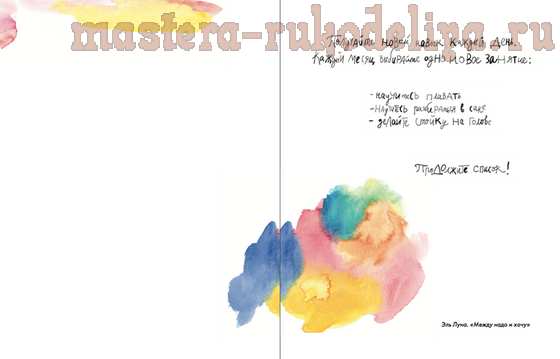 mastera-rukodelija.ru
Получайте новый навык каждый день.
Каждый месяц выбирайте одно новое занятие:
- научитесь плавать
- научитесь разбираться в
- делайте стойку на голове
Продолжите список!
Эль Луна. «Между надо и хочу»